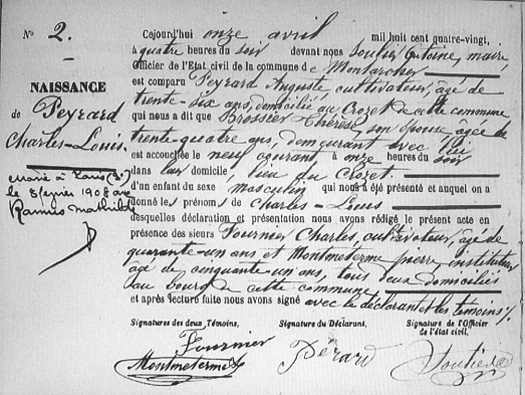 N° 2.
NAISSANCE
de Peyrard
Charles-Louis.
marié à Paris
le 8 février 1908 avec
Ramus Mathilde
Cejourd'hui onze avril mil huit cent quatre-vingt,
à quatre heures du soir devant nous Soulier Antoine, maire
Officier de l'Etat civil de la commune de Montarcher
est comparu Peyrard Auguste, cultivateur, âgé de
trente-six ans, domicilié au Crozet de cette commune,
qui nous a dit que Brossier Thérèse, son épouse, âgée de
trente-quatre ans, demeurant avec lui
est accouchée le neuf courant, à onze heures du soir
dans leur domicile, lieu du Crozet
d'un enfant du sexe masculin qui nous a été présenté et auquel on a
donné les prénoms de Charles-Louis
desquelles déclaration et présentation nous avons rédigé le présent acte en
présence des sieurs Fournier Charles, cultivateur, âgé de
quarante-un ans et Montmeterme pierre, instituteur
âgé de cinquante-un ans, tous deux domiciliés
au bourg de cette commune
et après lecture faite nous avons signé avec le déclarant et les témoins
Signatures des deux Témoins,
Signature du Déclarant,
Signature de l'Officier
de l'état civil.
Fournier
Montmeterme
Pérard